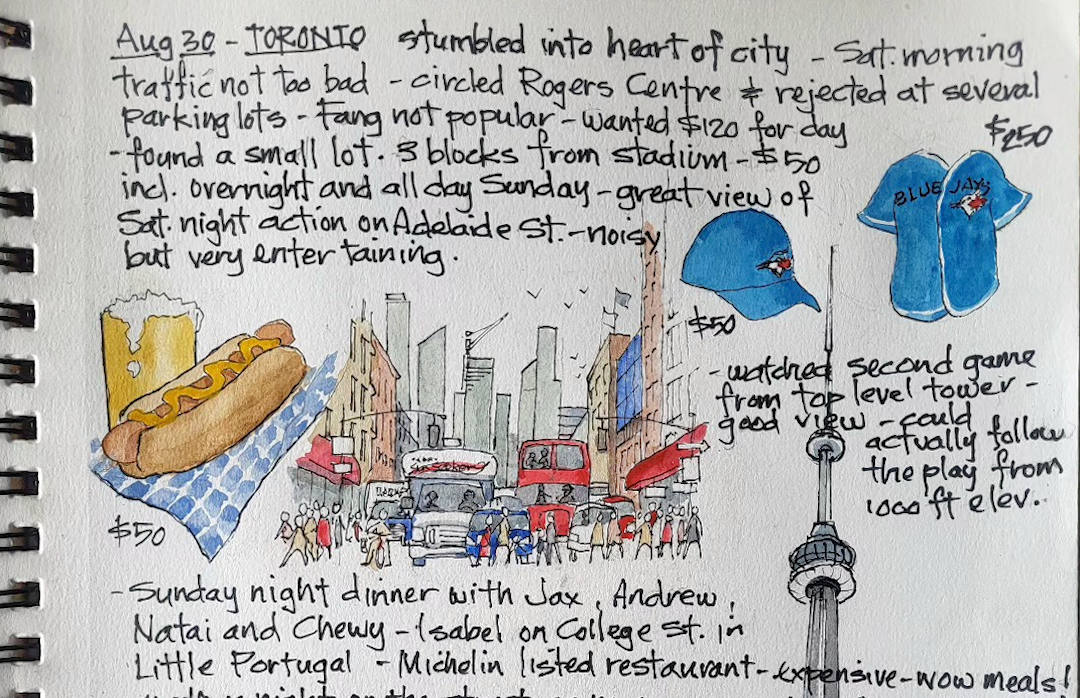 Aug 30 - TORONTO stumbled into heart of city - Sat. morning
traffic not too bad - circled Rogers Centre & rejected at several
parking lots - Fang not popular - wanted $120 for day
- found a small lot. 3 blocks from stadium - $50
incl. overnight and all day Sunday - great view of
Sat. night action on Adelaide St. - noisy
but very entertaining.
$250
BLUE JAYS
$50
- watched second game
from top level tower -
good view - could
actually follow
the play from
1000 ft elev.
$50
- Sunday night dinner with Jax, Andrew,
Natai and Chewy - Isabel on College St. in
Little Portugal - Michelin listed restaurant - expensive - wow meals!
night on the street